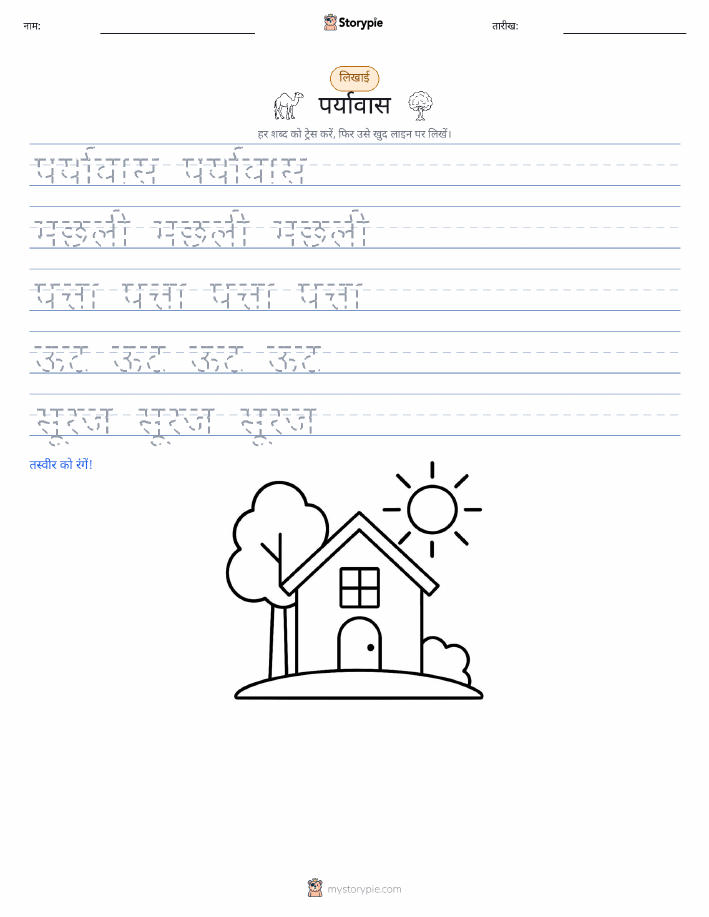 नाम: Storypie तारीख:
लिखाई
पर्यावास
हर शब्द को ट्रेस करें, फिर उसे खुद लाइन पर लिखें।
पर्यावास पर्यावास
मछली मछली मछली
पत्ता पत्ता पत्ता पत्ता
ऊट ऊट ऊट ऊट
सूरज सूरज सूरज
तस्वीर को रंगें!
mystorypie.com